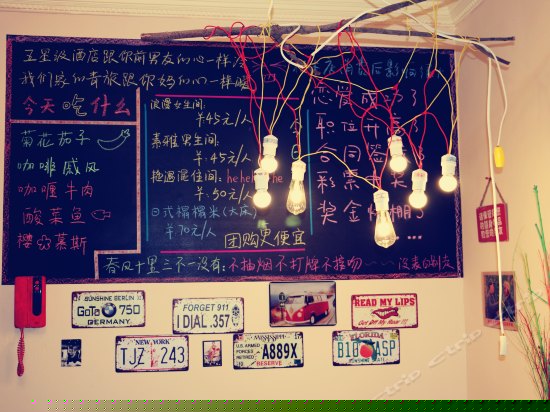 五星级酒店跟你前男友的心一样冷
我们家的青旅跟你妈的心一样暖
今天吃什么
菊花茄子
咖啡戚风
咖喱牛肉
酸菜鱼
樱 慕斯
浪漫女生间:
￥45元/人
素雅男生间:
￥45元/人
混住间: hehehehe
￥50元/人
日式榻榻米(大床)
￥70元/人
团购更便宜
恋爱成功了
职位升高了
合同签
彩票 奖
奖金 棚了
春风十里三不一没有:不抽烟不打牌不接吻~~没表的
SUNSHINE BERLIN
GoTo 750
GERMANY
FORGET 911
I DIAL .357
READ MY LIPS
NEW YORK
TJZ 243
MISSISSIPPI
U.S. ARMED
FORCES
RETIRED
A889X
RESERVE
FLORIDA
B10 ASP
Sunshine State
trip